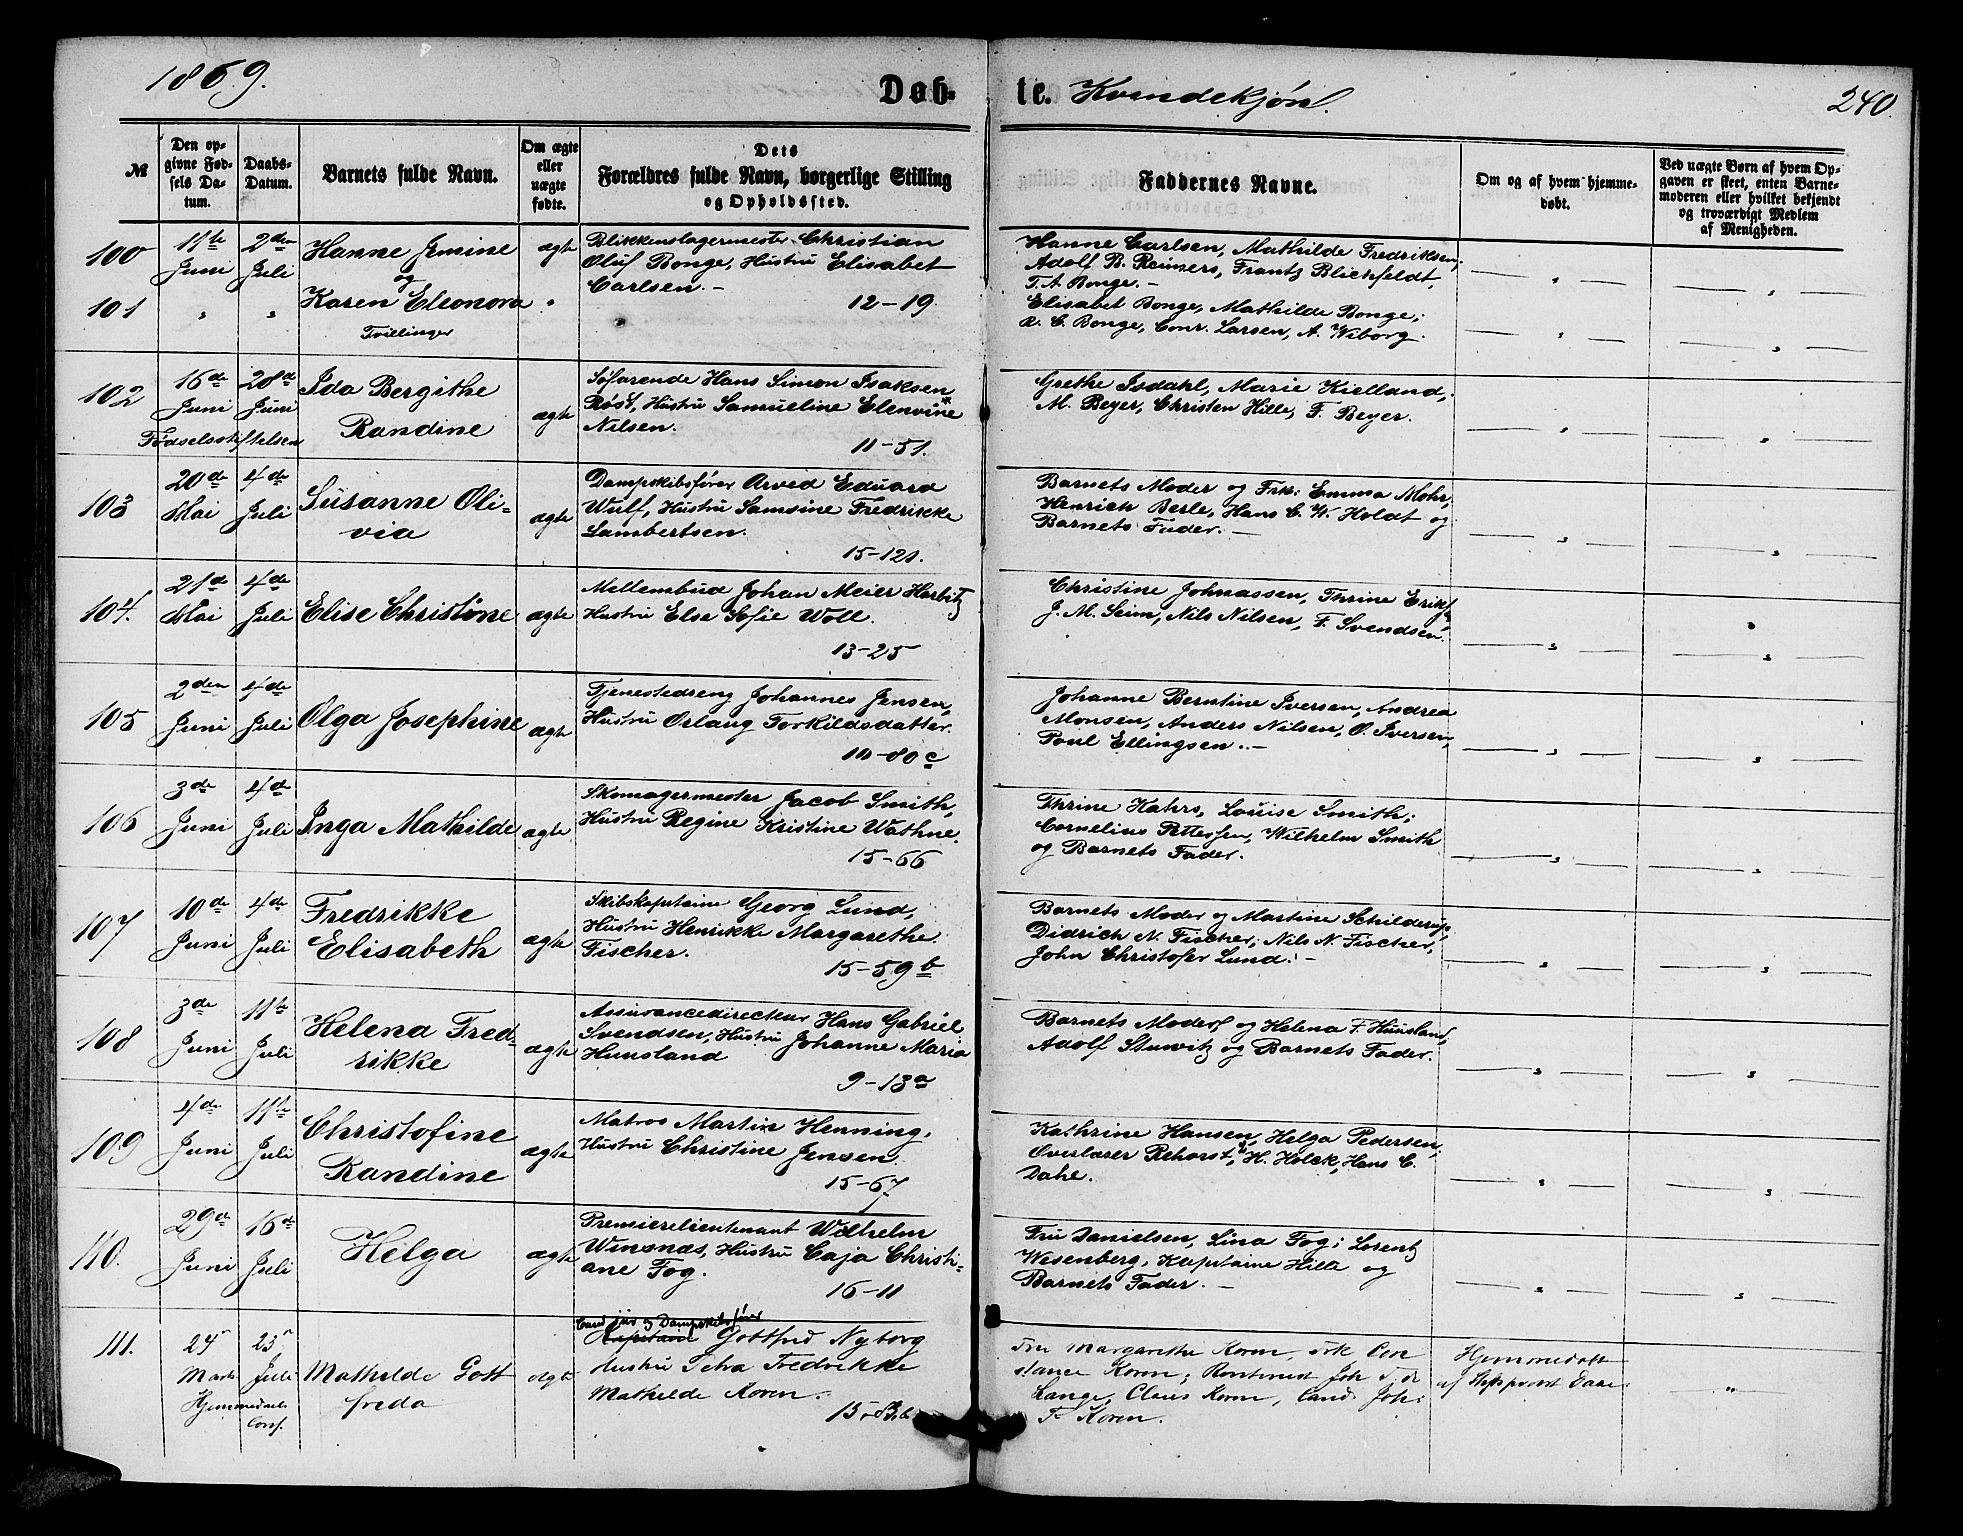 1869.
Døb-
te. Kvindekjøn.
240.
№
Den op-
givne Fød-
sels Da-
tum.
Daabs-
Datum.
Barnets fulde Navn.
Om ægte
eller
uægte
fødte.
Dets
Forældres fulde Navn, borgerlige Stilling
og Opholdssted.
Faddernes Navne.
Om og af hvem hjemme-
døbt.
Ved uægte Børn af hvem Op-
gaven er skeet, enten Barne-
moderen eller hvilket bekjendt
og troværdigt Medlem
af Menigheden.
100
11te
Juni
2den
Juli
Hanne Jemine
og
ægte
Blikkenslagermester Christian
Oluf Bonge, Hustru Elisabet
Carlsen. –
12-19.
Hanne Carlsen, Mathilde Fredriksen,
Adolf B. Reimers, Frantz Blichfeldt,
T. A. Bonge. –
101
Karen Eleonora
Tvillinger
Elisabet Bonge, Mathilde Bonge;
A. C. Bonge, Conr. Larsen, A. Wiborg.
102
16de
Juni
28de
Juni
Fødselsstiftelsen
Ida Bergithe
Randine
ægte
Søfarende Hans Simon Isaksen
Røst, Hustru Samueline Elenvine
Nilsen.
11-51.
Grethe Isdahl, Marie Kielland;
M. Beyer, Christen Hille, F. Beyer.
103
20de
Mai
4de
Juli
Susanne Oli-
via
ægte
Dampskibsfører Arved Eduard
Wulf, Hustru Samsine Fredrikke
Lambertsen.
15-121.
Barnets Moder og Frk: Emma Mohr,
Henrich Berle, Hans C. W. Holdt og
Barnets Fader. –
104.
21de
Mai
4de
Juli
Elise Christine
ægte
Mellembud Johan Meier Harbitz
Hustru Else Sofie Woll.
13-25
Christine Johnassen, Thrine Eriks
J. M. Seim, Nils Nilsen, F. Svendsen.
105
2den
Juni
4de
Juli
Olga Josephine
ægte
Tjenestedreng Johannes Jensen,
Hustru Orlaug Torkildsdatter.
10-80c
Johanne Berntine Iversen, Andrea
Monsen, Anders Nilsen, O. Iversen,
Poul Ellingsen. –
106
3de
Juni
4de
Juli
Inga Mathilde
ægte
Skomagermester Jacob Smith,
Hustru Regine Kristine Wathne.
15-66
Thrine Hahrs, Louise Smith;
Cornelius Pettersen, Wilhelm Smith
og Barnets Fader.
107
10de
Juni
4de
Juli
Fredrikke
Elisabeth
ægte
Skibskapitaine Georg Lund,
Hustru Henrikke Margarethe
Fischer.
15-59b
Barnets Moder og Martine Schilderup,
Didrich N. Fischer, Nils N. Fischer,
John Christofer Lund. –
108
3de
Juni
11te
Juli
Helena Fred-
rikke
ægte
Assurancedirecteur Hans Gabriel
Svendsen, Hustru Johanne Maria
Huusland
9-13a
Barnets Moder og Helena F. Huusland,
Adolf Stuwitz og Barnets Fader.
109
4de
Juni
11te
Juli
Christofine
Randine
ægte
Matros Martin Henning,
Hustru Christine Jensen.
15-67
Kathrine Hansen, Helga Pedersen,
Overlærer Rehorst, H. Holck, Hans C.
Dahe.
110.
29de
Juni
16de
Juli
Helga
ægte
Premierelieutenant Wilhelm
Winsnæs, Hustru Caja Christi-
ane Fog.
16-11
Fru Danielsen, Lina Fog; Lorentz
Wesenberg, Kapitaine Hille og
Barnets Fader. –
111.
24
Marts
25
Juli
Hjemmedøbt
Conf.
Mathilde Gott
freda
ægte
Cand jur og Dampskibsfører
Kapitain Gottfred Nyborg
Hustru Petra Fredrikke
Mathilde Koren.
15-83b
Fru Margarethe Koren, Frk Con
stance Koren;
Lange, Claus Koren, Cand. Joh:
F. Koren.
Hjemmedøbt
af Stiftsprovst Daae